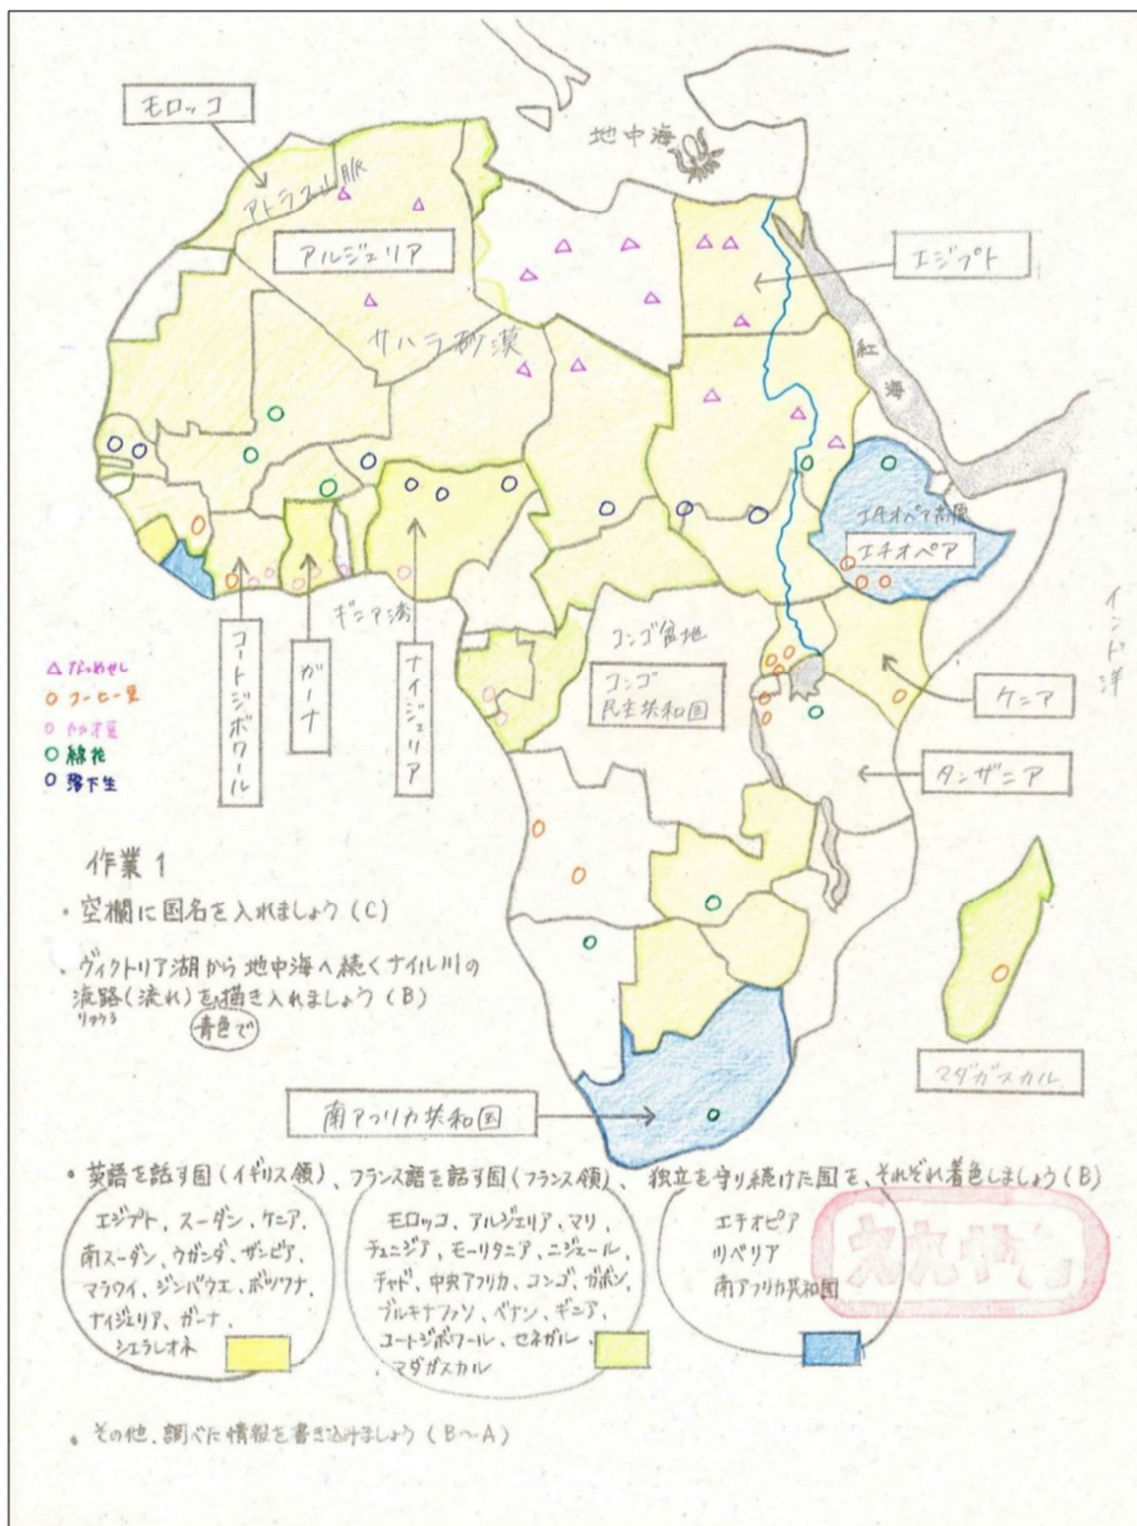 モロッコ
地中海
アトラス山脈
アルジェリア
エジプト
サハラ砂漠
紅海
エチオペア高原
エチオペア
ギニア湾
コンゴ盆地
コンゴ
民主共和国
インド洋
ケニア
タンザニア
コートジボワール
ガーナ
ナイジェリア
なつめやし
コーヒー豆
カカオ豆
綿花
落下生
作業1
・空欄に国名を入れましょう(C)
・ヴィクトリア湖から地中海へ続くナイル川の
流路(流れ)を描き入れましょう(B)
りゅうろ
青色で
マダガスカル
南アフリカ共和国
・英語を話す国(イギリス領)、フランス語を話す国(フランス領)、独立を守り続けた国を、それぞれ着色しましょう(B)
エジプト、スーダン、ケニア、
南スーダン、ウガンダ、ザンビア、
マラウイ、ジンバウエ、ボツワナ、
ナイジェリア、ガーナ、
シエラレオネ
モロッコ、アルジェリア、マリ、
チュニジア、モーリタニア、ニジェール、
チャド、中央アフリカ、コンゴ、ガボン、
ブルキナファソ、ベナン、ギニア、
コートジボワール、セネガル、
、マダガスカル
エチオピア
リベリア
南アフリカ共和国
・その他、調べた情報を書き込みましょう(B〜A)